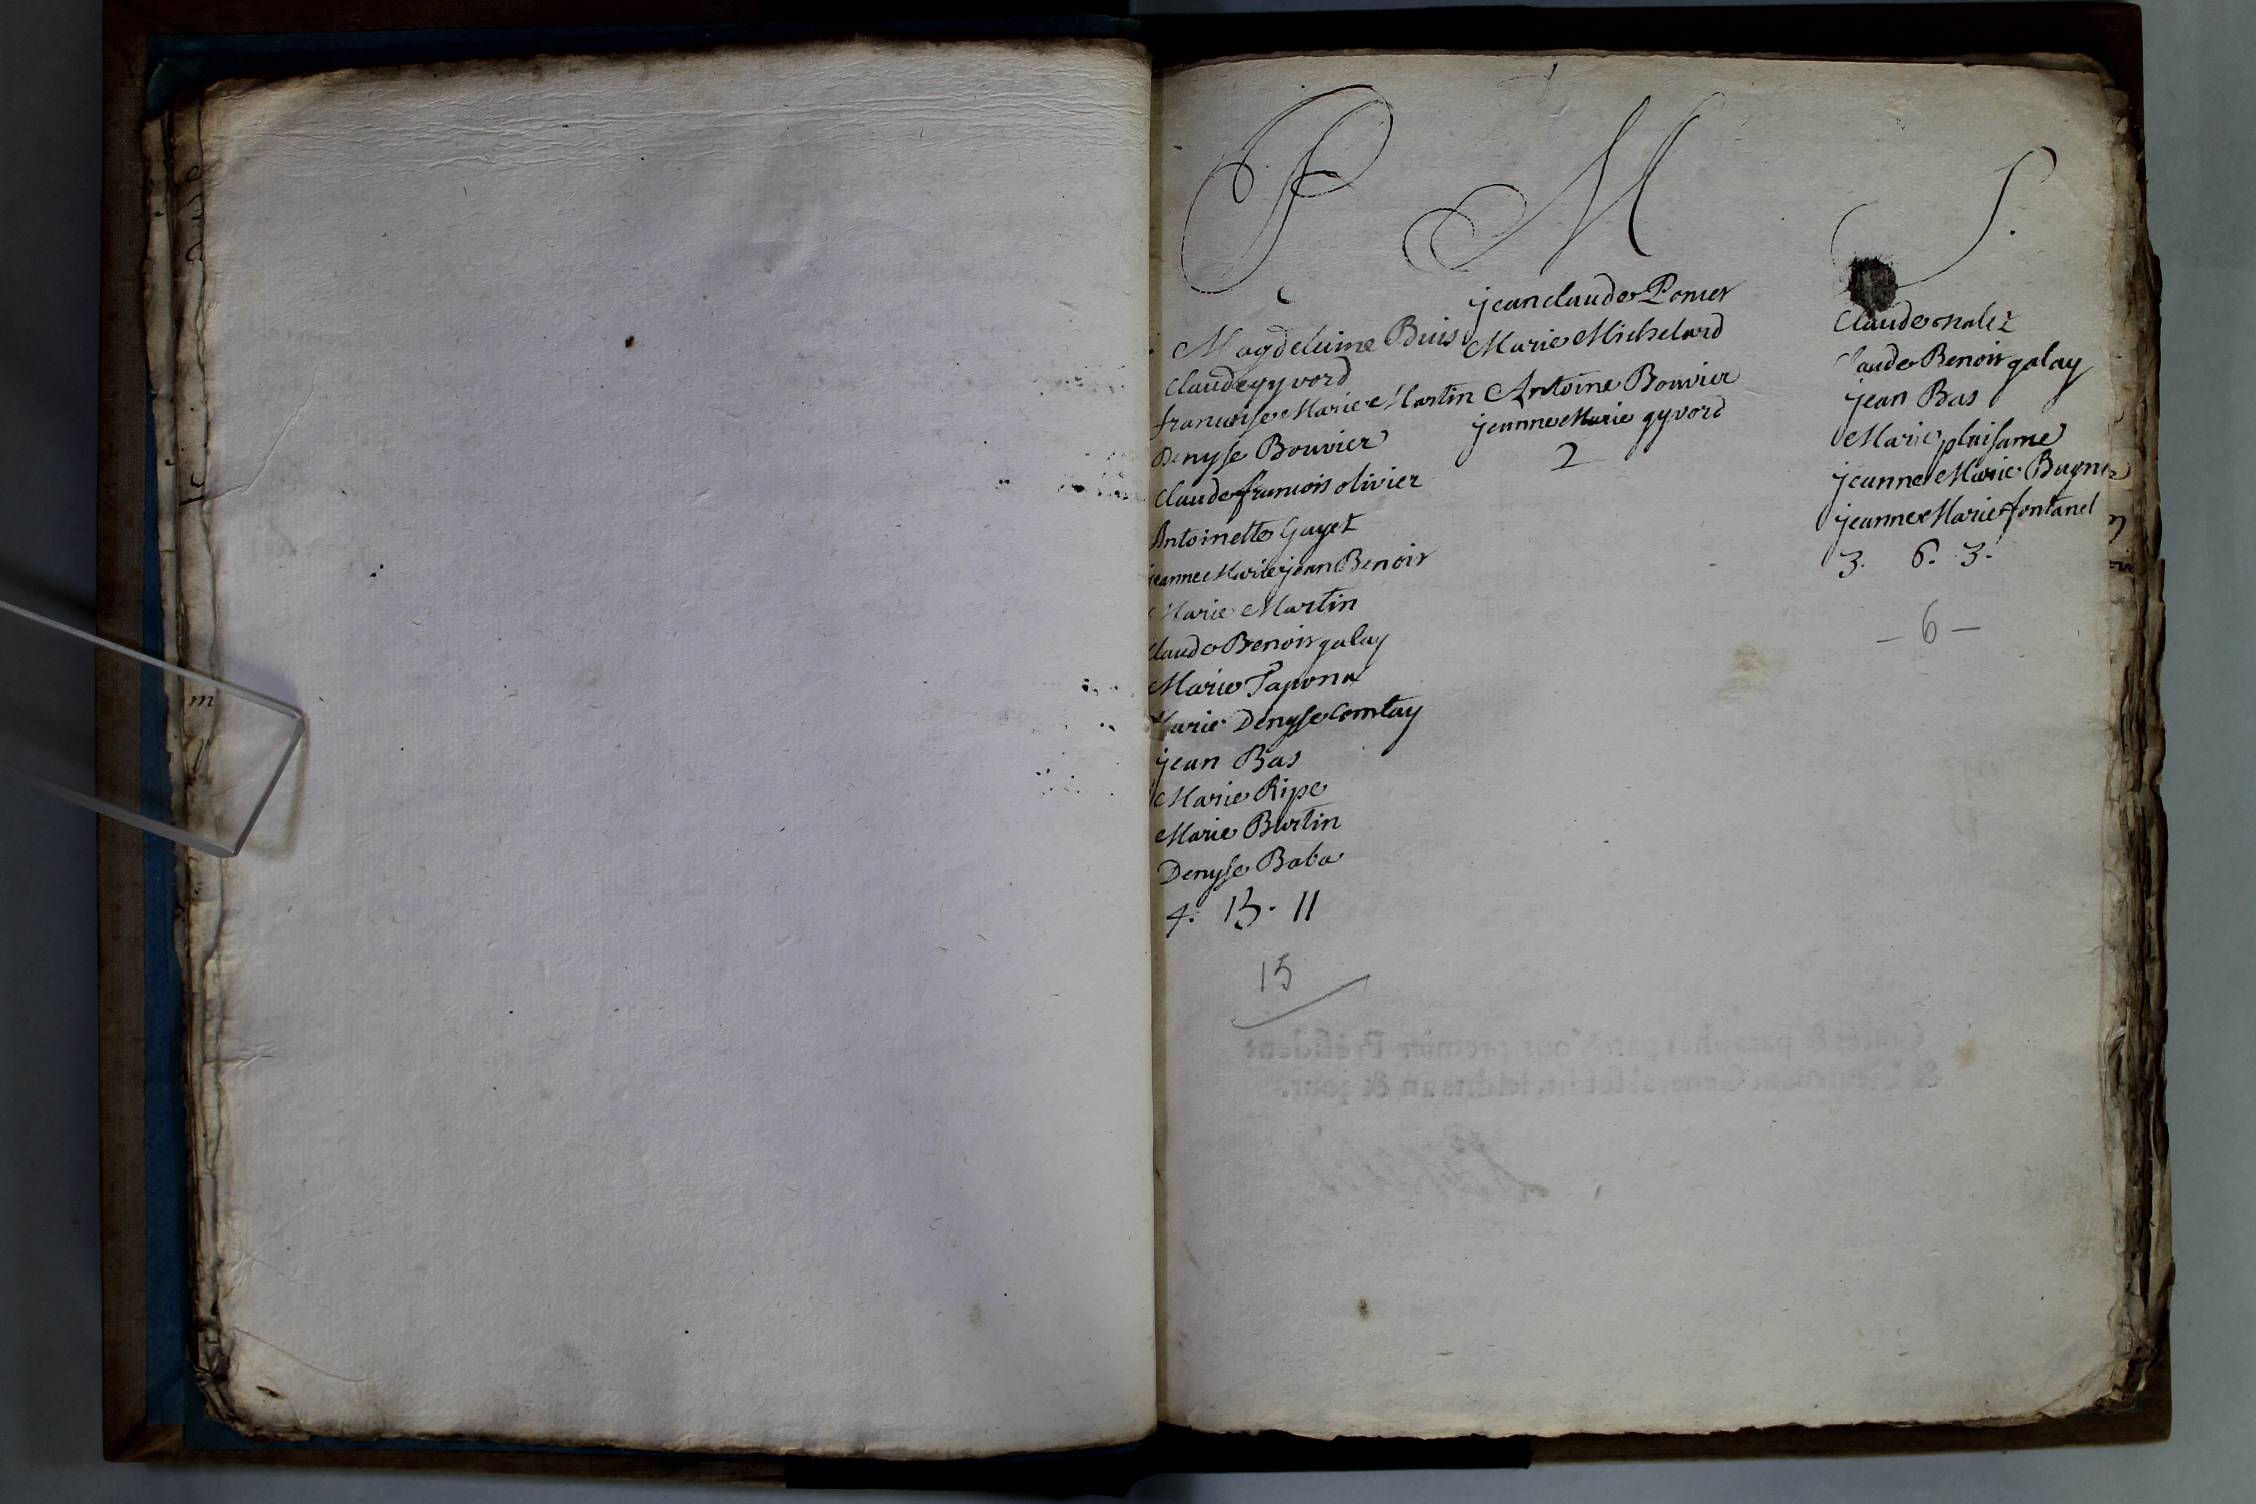 P
Magdeleine Buis
Claude gyvord
françoise Marie Martin
Denyse Bouvier
Claude françois olivier
Antoinette Gayet
jeanne Marie jean Benoir
Marie Martin
Claude Benoir galay
Marie Papona
Marie Denyse Comtay
jean Bas
Marie Ripe
Marie Burtin
Denyse Baba
4. 15. 11
15
M
jean claude Pomer
Marie Michelard
Antoine Bouvier
jeanne Marie gyvord
2
S.
Claude nalet
Claude Benoir galay
jean Bas
Marie plaisame
jeanne Marie
jeanne Marie fontanel
3. 6. 3.
- 6 -